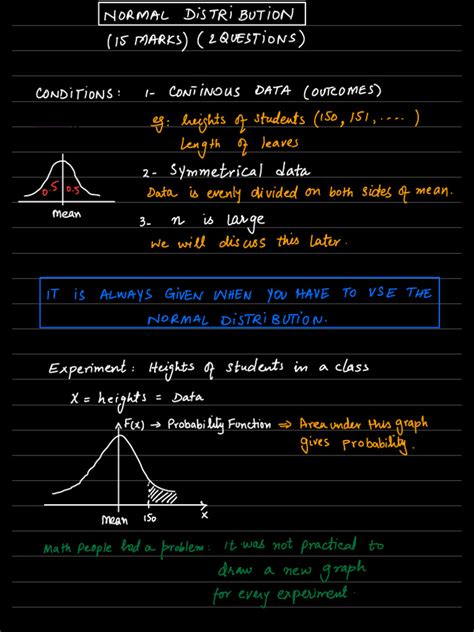 NORMAL DISTRIBUTION
(15 MARKS) (2 QUESTIONS)
CONDITIONS: 1- CONTINOUS DATA (OUTCOMES)
eg: heights of students (150, 151, ....)
Length of leaves
2- Symmetrical data
0.5 0.5
Data is evenly divided on both sides of mean.
mean
3- n is large
We will discuss this later.
IT IS ALWAYS GIVEN WHEN YOU HAVE TO USE THE
NORMAL DISTRIBUTION.
Experiment: Heights of students in a class
X = heights = Data
F(x) → Probability Function ⇒ Area under this graph
gives probability.
mean 150 x
Math people had a problem: it was not practical to
draw a new graph
for every experiment.